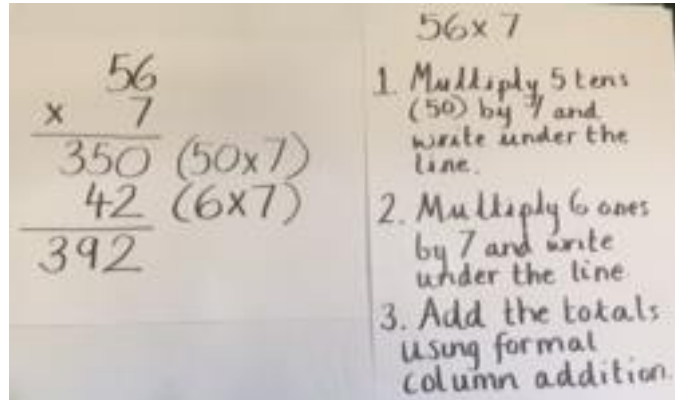 56
x 7
350 (50x7)
42 (6x7)
392
56x 7
1 Multiply 5 tens
(50) by 7 and
write under the
line.
2. Multiply 6 ones
by 7 and write
under the line
3. Add the totals
using formal
column addition.